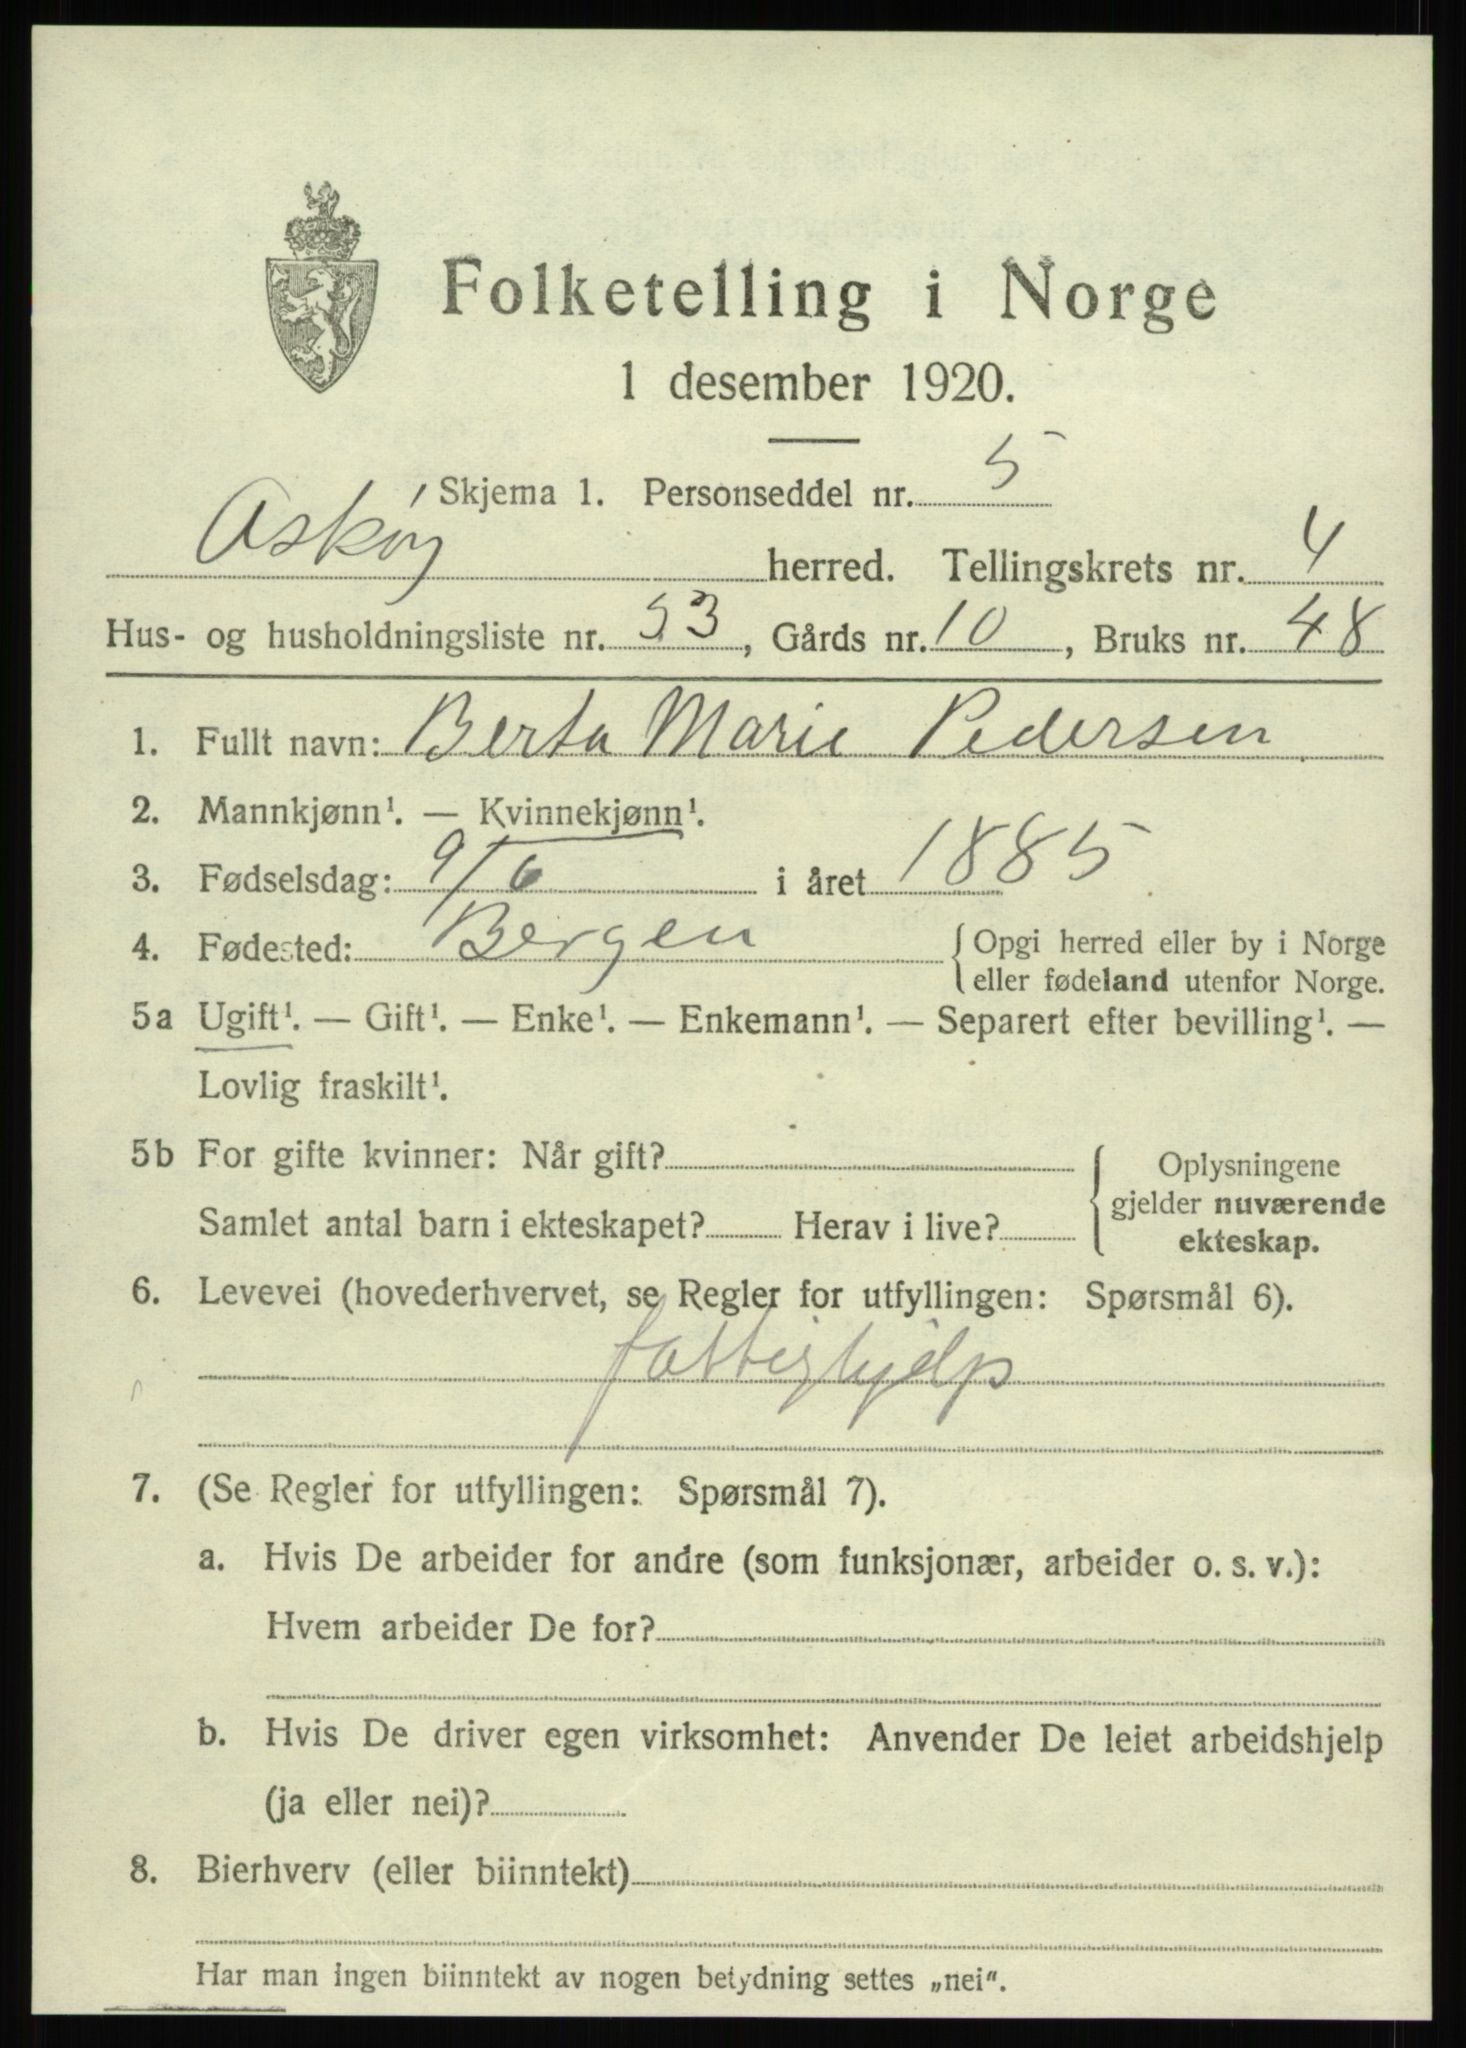 Folketelling i Norge
1 desember 1920.
Skjema 1. Personseddel nr. 5
Askøy herred. Tellingskrets nr. 4
Hus- og husholdningsliste nr. 53, Gårds nr. 10, Bruks nr. 48
1. Fullt navn: Berta Marie Pedersen
2. Mannkjønn¹. — Kvinnekjønn¹.
3. Fødselsdag: 9/6 i året 1885
4. Fødested: Bergen {Opgi herred eller by i Norge
eller fødeland utenfor Norge.
5a Ugift¹. — Gift¹. — Enke¹. — Enkemann¹. — Separert efter bevilling¹. —
Lovlig fraskilt¹.
5b For gifte kvinner: Når gift?
Samlet antal barn i ekteskapet? Herav i live?
{Oplysningene
gjelder nuværende
ekteskap.
6. Levevei (hovederhvervet, se Regler for utfyllingen: Spørsmål 6).
fattighjelp
7. (Se Regler for utfyllingen: Spørsmål 7).
a. Hvis De arbeider for andre (som funksjonær, arbeider o. s. v.):
Hvem arbeider De for?
b. Hvis De driver egen virksomhet: Anvender De leiet arbeidshjelp
(ja eller nei)?
8. Bierhverv (eller biinntekt)
Har man ingen biinntekt av nogen betydning settes „nei".